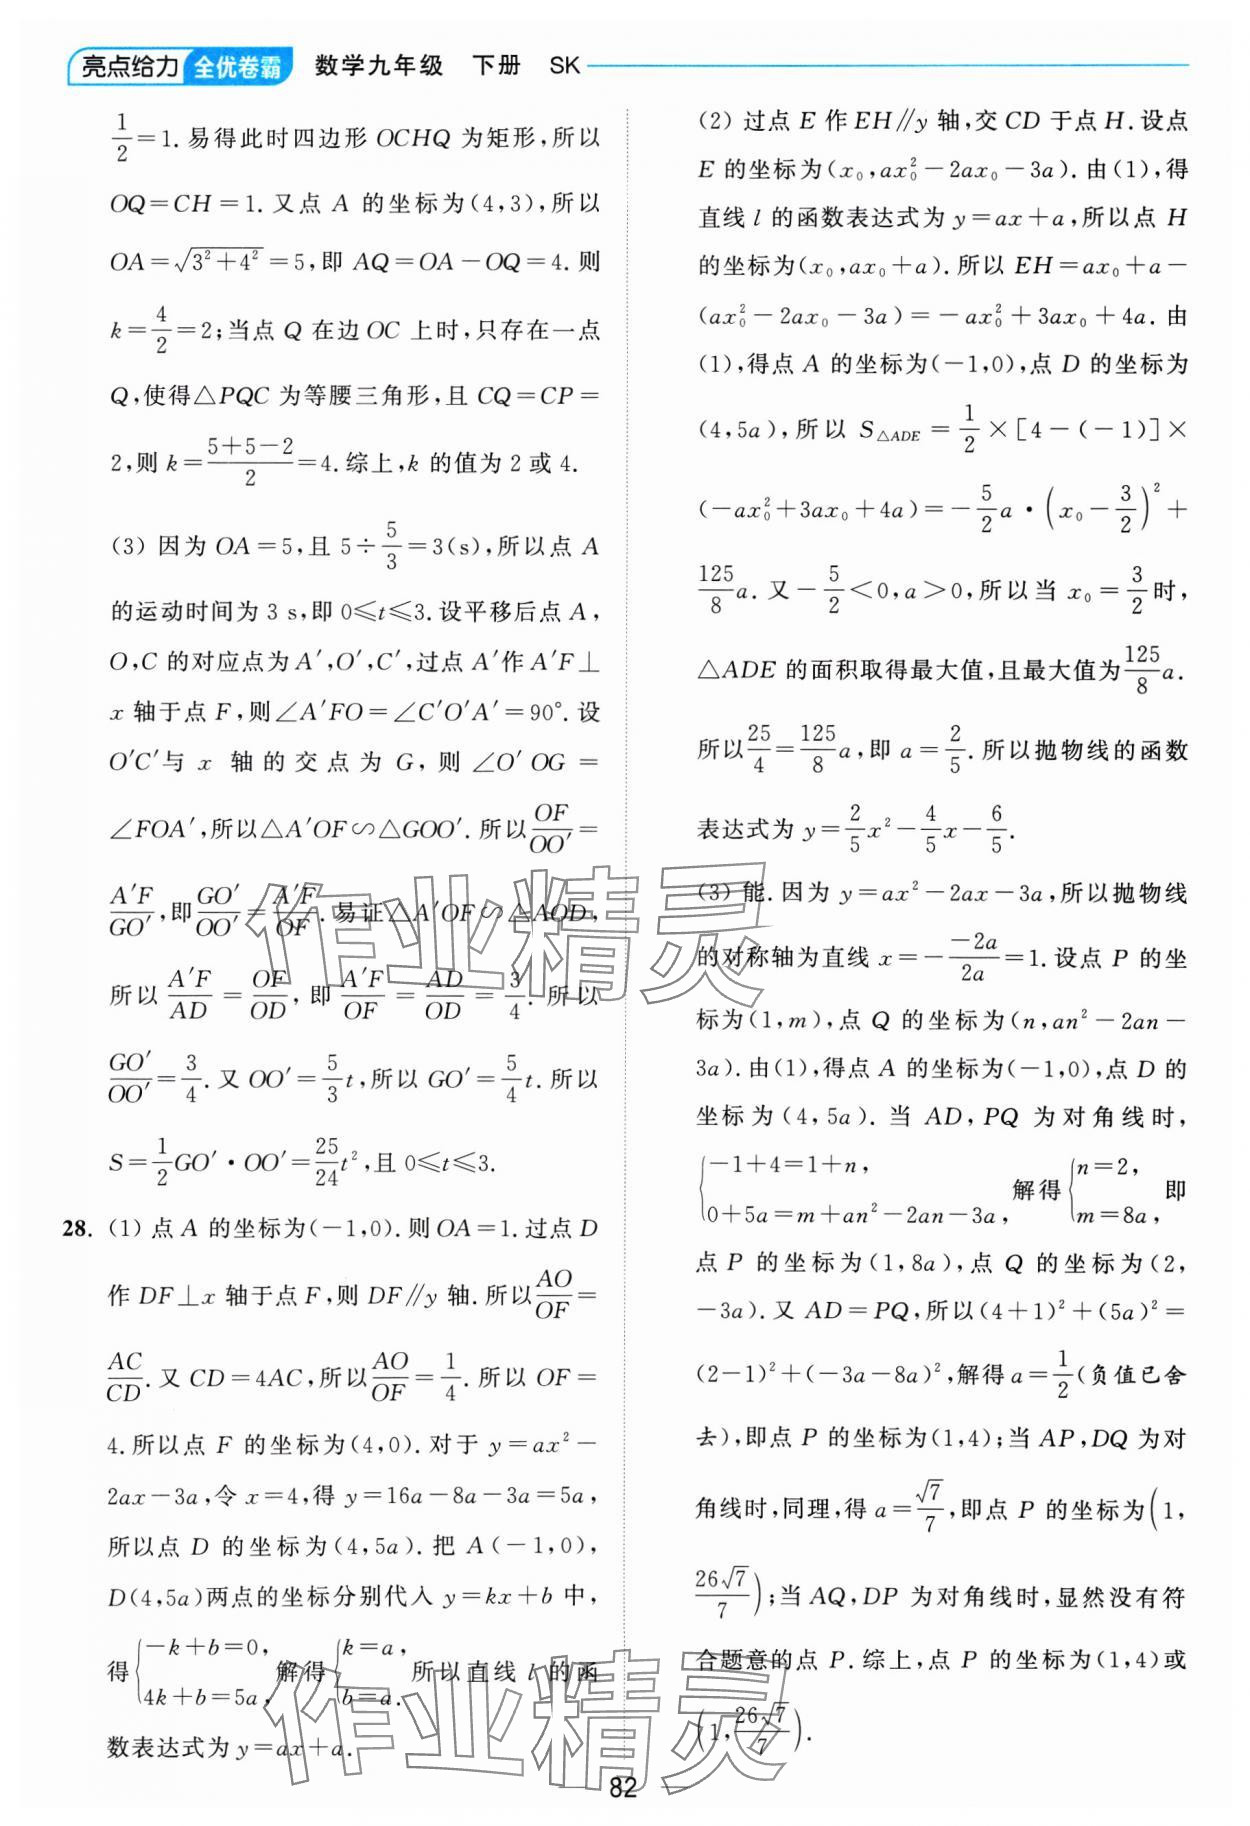 亮点给力 全优卷霸 数学九年级 下册 SK
1/2=1.易得此时四边形 OCHQ 为矩形,所以
OQ=CH=1.又点 A 的坐标为(4,3),所以
OA=√(3²+4²)=5,即 AQ=OA-OQ=4.则
k=4/2=2;当点 Q 在边 OC 上时,只存在一点
Q,使得△PQC 为等腰三角形,且 CQ=CP=
2,则 k=(5+5-2)/2=4.综上,k 的值为 2 或 4.
(3) 因为 OA=5,且 5÷5/3=3(s),所以点 A
的运动时间为 3 s,即 0≤t≤3.设平移后点 A,
O,C 的对应点为 A′,O′,C′,过点 A′作 A′F⊥
x 轴于点 F,则∠A′FO=∠C′O′A′=90°.设
O′C′与 x 轴的交点为 G,则 ∠O′OG=
∠FOA′,所以△A′OF∽△GOO′.所以OF/OO′=
A′F/GO′,即GO′/OO′=A′F/OF.易证△A′OF∽△AOD,
所以 A′F/AD=OF/OD,即 A′F/OF=AD/OD=3/4.所以
GO′/OO′=3/4.又 OO′=5/3t,所以 GO′=5/4t.所以
S=1/2GO′·OO′=25/24t²,且 0≤t≤3.
28. (1) 点 A 的坐标为(-1,0).则 OA=1.过点 D
作 DF⊥x 轴于点 F,则 DF∥y 轴.所以AO/OF=
AC/CD.又 CD=4AC,所以AO/OF=1/4.所以 OF=
4.所以点 F 的坐标为(4,0).对于 y=ax²-
2ax-3a,令 x=4,得 y=16a-8a-3a=5a,
所以点 D 的坐标为(4,5a).把 A(-1,0),
D(4,5a)两点的坐标分别代入 y=kx+b 中,
得{-k+b=0, 4k+b=5a, 解得{k=a, b=a. 所以直线 l 的函
数表达式为 y=ax+a.
(2) 过点 E 作 EH∥y 轴,交 CD 于点 H.设点
E 的坐标为(x₀,ax₀²-2ax₀-3a).由(1),得
直线 l 的函数表达式为 y=ax+a,所以点 H
的坐标为(x₀,ax₀+a).所以 EH=ax₀+a-
(ax₀²-2ax₀-3a)=-ax₀²+3ax₀+4a.由
(1),得点 A 的坐标为(-1,0),点 D 的坐标为
(4,5a),所以 S△ADE=1/2×[4-(-1)]×
(-ax₀²+3ax₀+4a)=-5/2a·(x₀-3/2)²+
125/8a.又-5/2<0,a>0,所以当 x₀=3/2时,
△ADE 的面积取得最大值,且最大值为125/8a.
所以25/4=125/8a,即 a=2/5.所以抛物线的函数
表达式为 y=2/5x²-4/5x-6/5.
(3) 能.因为 y=ax²-2ax-3a,所以抛物线
的对称轴为直线 x=-(-2a)/2a=1.设点 P 的坐
标为(1,m),点 Q 的坐标为(n,an²-2an-
3a).由(1),得点 A 的坐标为(-1,0),点 D 的
坐标为(4,5a).当 AD,PQ 为对角线时,
{-1+4=1+n, 0+5a=m+an²-2an-3a, 解得{n=2, m=8a, 即
点 P 的坐标为(1,8a),点 Q 的坐标为(2,
-3a).又 AD=PQ,所以(4+1)²+(5a)²=
(2-1)²+(-3a-8a)²,解得 a=1/2(负值已舍
去),即点 P 的坐标为(1,4);当 AP,DQ 为对
角线时,同理,得 a=√7/7,即点 P 的坐标为(1,
26√7/7);当 AQ,DP 为对角线时,显然没有符
合题意的点 P.综上,点 P 的坐标为(1,4)或
(1,26√7/7).
82
作业精灵
作业精灵